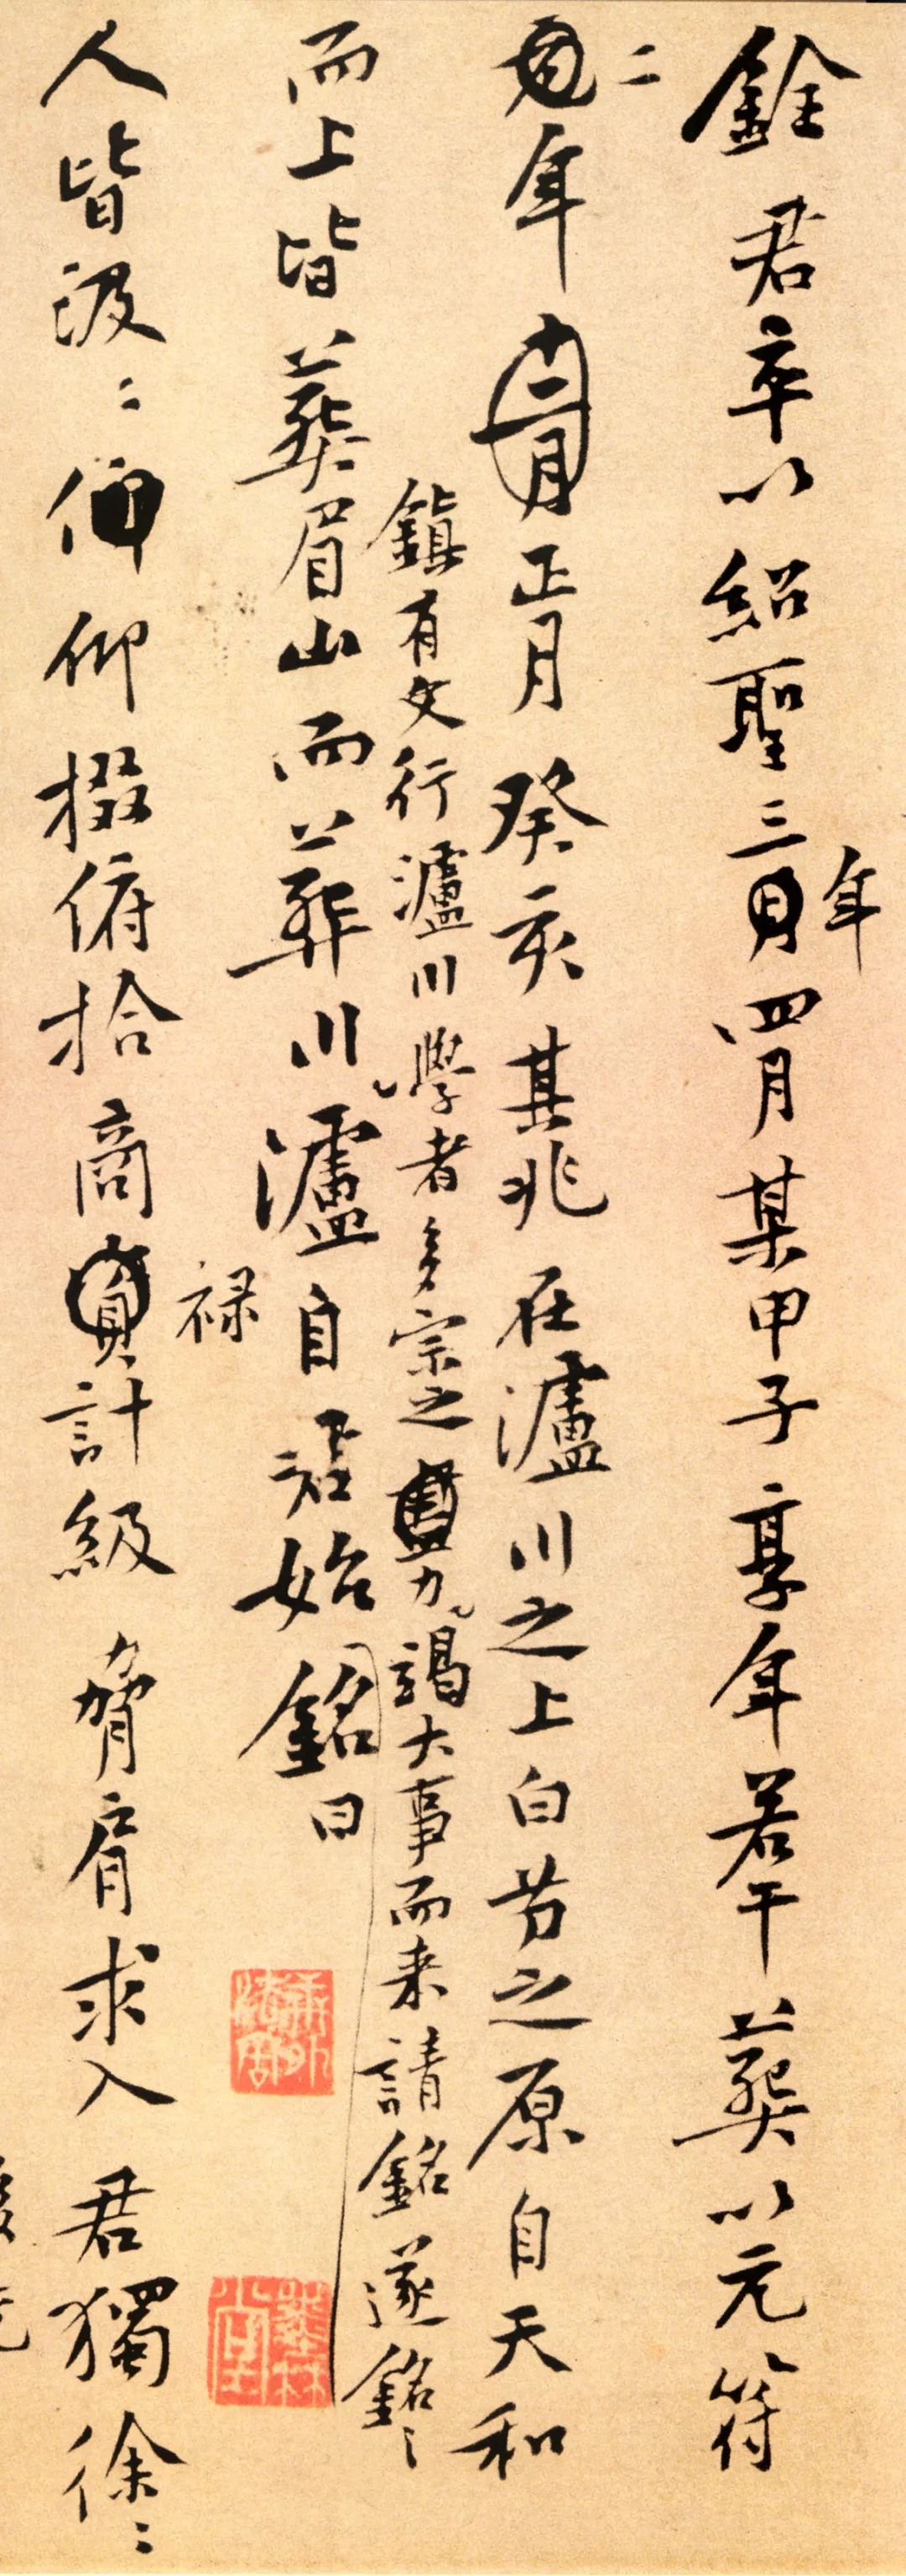 銓君卒以紹聖三年四月某甲子享年若干葬以元符
二年正月癸亥其兆在瀘川之上白芀之原自天和
鎮有文行瀘川學者多宗之力謁大事而来請銘遂銘之
而上皆葬眉山而葬川瀘自君始銘曰
禄
人皆汲〻仰掇俯拾商計級脅肩求入君獨徐〻